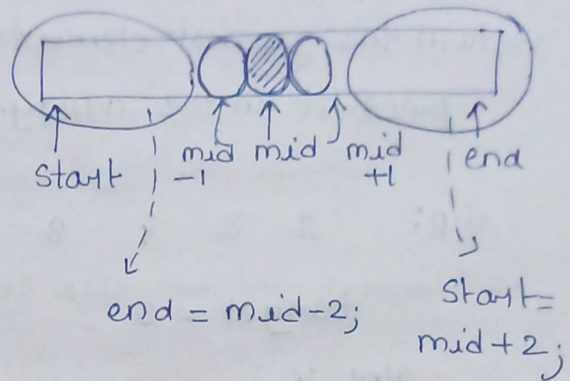 start
mid
-1
mid
mid
+1
end
end = mid-2;
start=
mid+2;